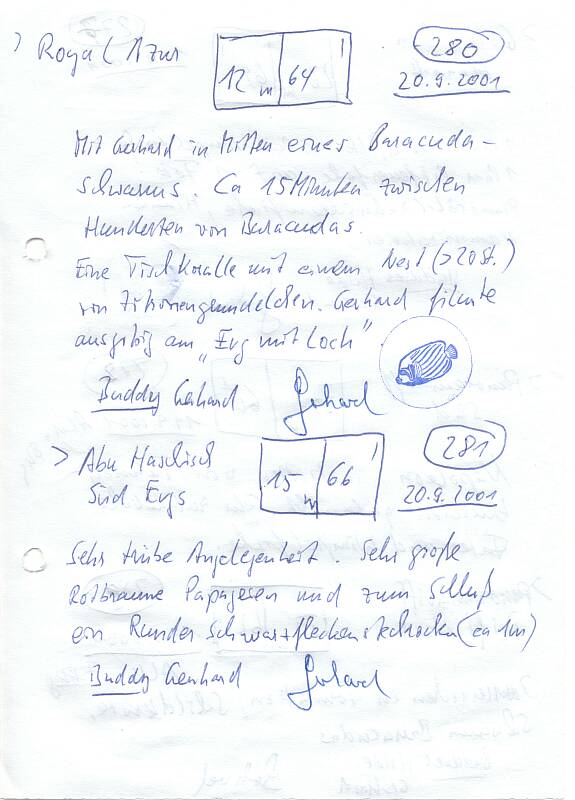 > Royal Azur
12 m 64' 280
20.9.2001
Mit Gerhard in Mitten eines Baracuda-
schwarms. Ca 15 Minuten zwischen
Hunderten von Baracudas.
Eine Tischkoralle mit einem Nest (>20 St.)
von Zitronengrundelchen. Gerhard filmte
ausgibig am "Erg mit Loch"
Buddy Gerhard Gerhard
> Abu Haschisch
Süd Ergs
15 m 66' 281
20.9.2001
Sehr trübe Angelegenheit. Sehr große
Rotbraune Papageien und zum Schluß
ein Runder Schwarzfleckenstechrochen (ca 1m)
Buddy Gerhard Gerhard